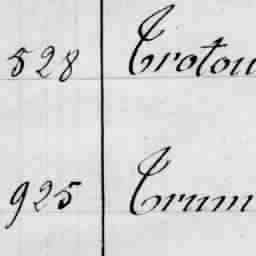 528 Trotou
925 Trum